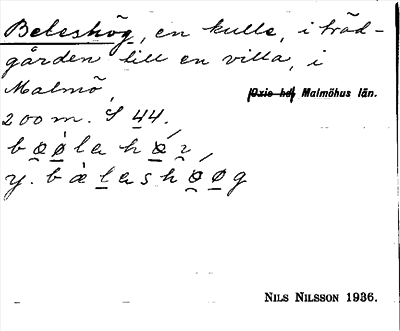 Beleshög, en kulle, i träd-
gården till en villa, i
Malmö,
[Oxie hd] Malmöhus län.
200 m. S 44.
y.
NILS NILSSON 1936.